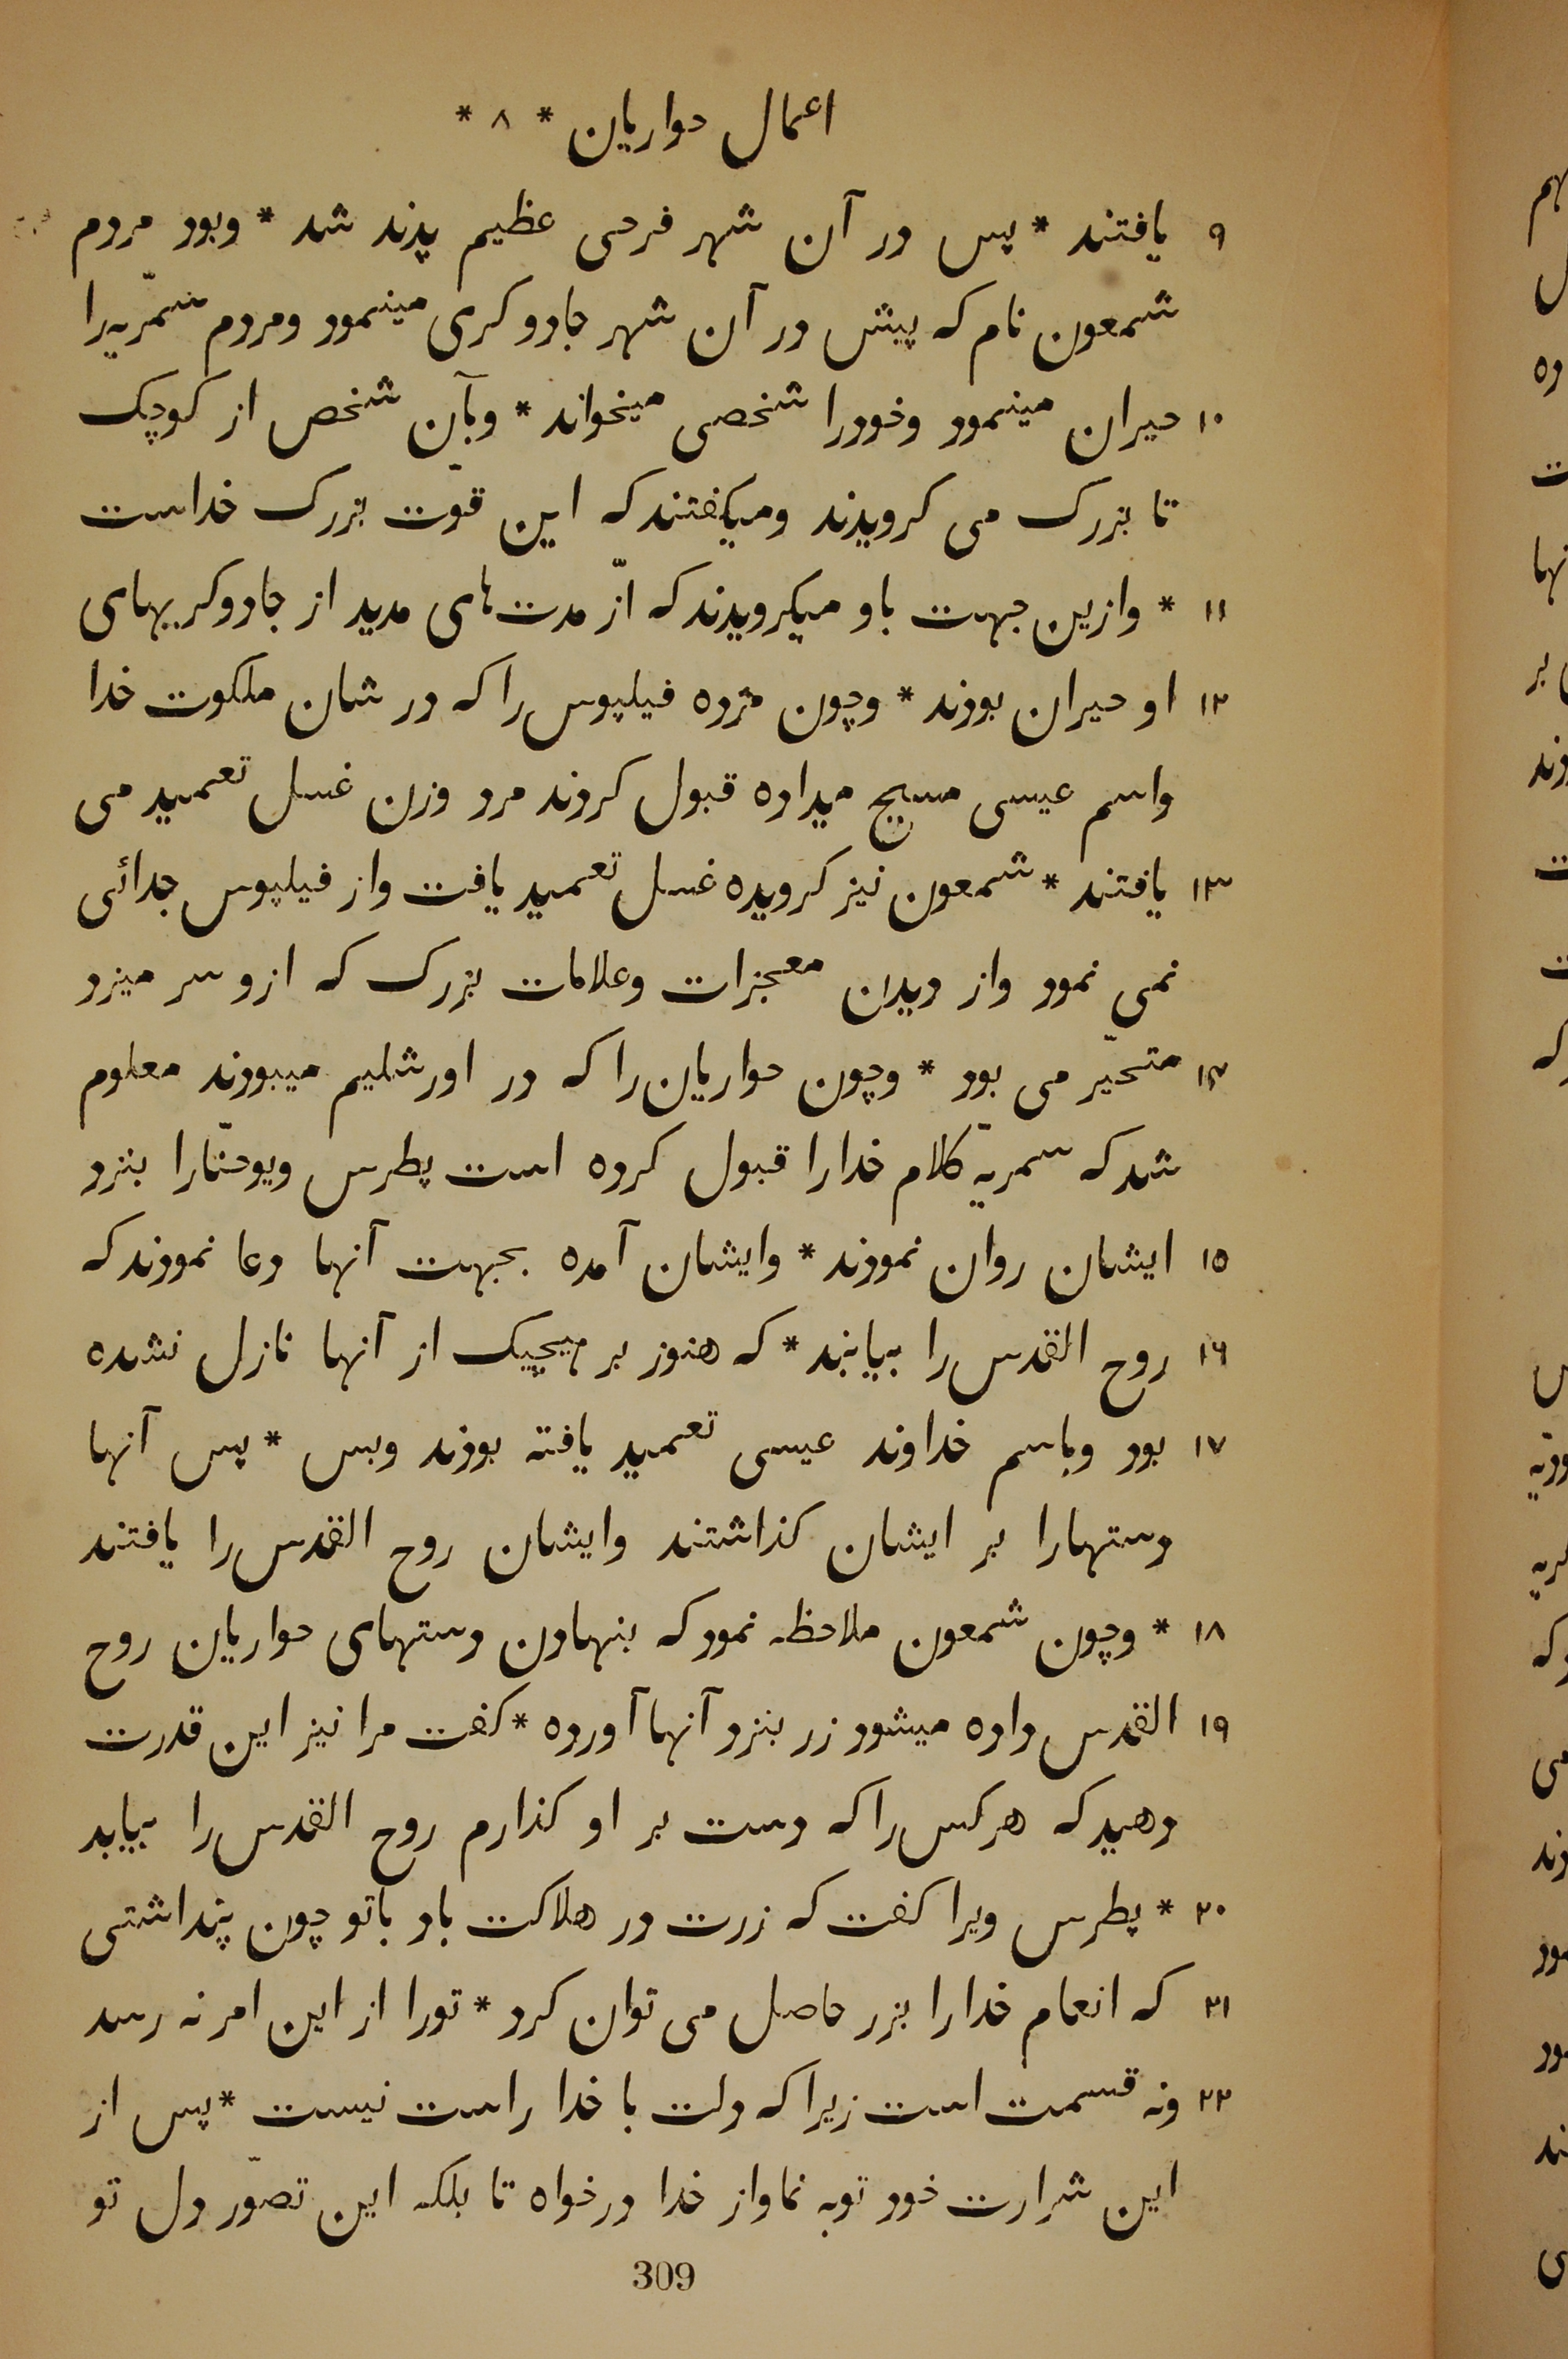 اعمال حواریان * ۸ *
۹ یافتند * پس در آن شهر فرحی عظیم پدید شد * وبود مردم
شمعون نام که پیش در آن شهر جادوکری مینمود ومردم سمریّه‌را
۱۰ حیران مینمود وخودرا شخصی میخواند * وبآن شخص از کوچک
تا بزرک می کرویدند ومیکفتند که این قوّت بزرک خداست
۱۱ * وازین جهت باو میکرویدند که از مدّت‌های مدید از جادوکریهای
۱۲ او حیران بودند * وچون مژده فیلپوس را که در شان ملکوت خدا
واسم عیسی مسیح میداده قبول کردند مرد وزن غسل تعمید می
۱۳ یافتند * شمعون نیز کرویده غسل تعمید یافت واز فیلپوس جدائی
نمی نمود واز دیدن معجزات وعلامات بزرک که ازو سر میزد
۱۴ متحیّر می بود * وچون حواریان را که در اورشلیم میبودند معلوم
شد که سمریّه کلام خدارا قبول کرده است پطرس ویوحنّارا بنزد
۱۵ ایشان روان نمودند * وایشان آمده بجهت آنها دعا نمودند که
۱۶ روح القدس را بیابند * که هنوز بر هیچیک از آنها نازل نشده
۱۷ بود وباسم خداوند عیسی تعمید یافته بودند وبس * پس آنها
دستهارا بر ایشان کذاشتند وایشان روح القدس را یافتند
۱۸ * وچون شمعون ملاحظه نمود که بنهادن دستهای حواریان روح
۱۹ القدس داده میشود زر بنزد آنها آورده * کفت مرا نیز این قدرت
دهید که هرکس را که دست بر او کذارم روح القدس را بیابد
۲۰ * پطرس ویرا کفت که زرت در هلاکت باد باتو چون پنداشتی
۲۱ که انعام خدارا بزر حاصل می توان کرد * تورا از این امر نه رسد
۲۲ ونه قسمت است زیرا که دلت با خدا راست نیست * پس از
این شرارت خود توبه نما واز خدا درخواه تا بلکه این تصوّر دل تو
309